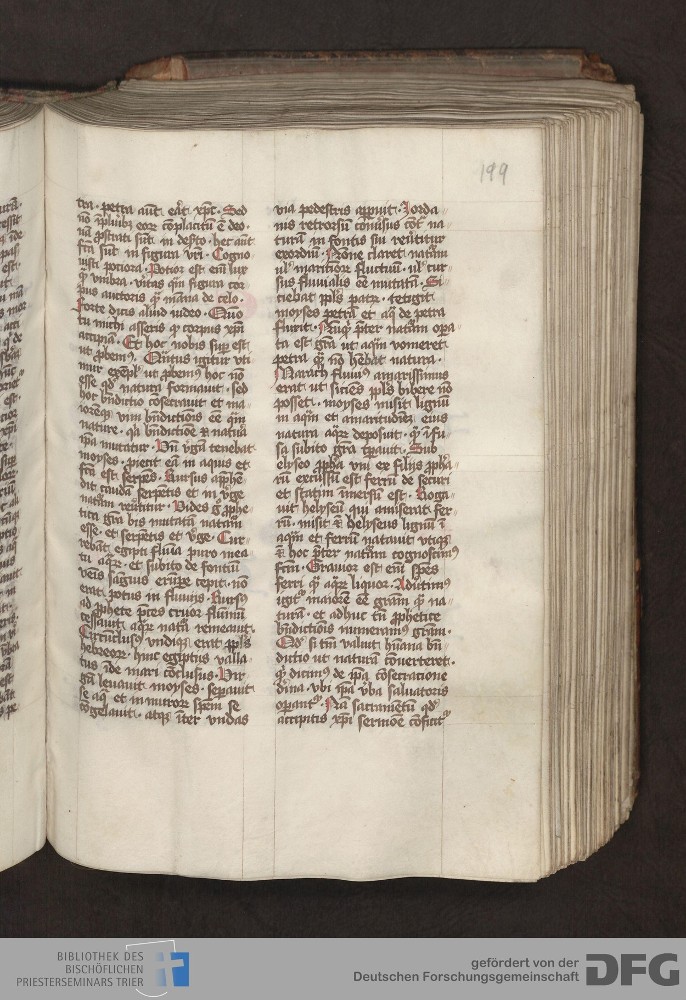 199
tra. petra aūt. erāt xp̄c. Sed
nō ī plurib; eorꝝ cōplacitū ē deo.
nā ꝓstrati sūt in deſto. hec aūt
fcā sūt in figura vr̄i. Cogno
uisti potiora. Potior est enī lux
ꝙ̄ vmbra. vitas qm̄ figura cor
pus auctoris ꝙ̄ māna de celo.
forte dicis aliud video. Quō
tu michi asseris ꝙ corpus xp̄i
accipiā. Et hoc nobis suꝑ est
ut ꝓbemꝰ. Quītus igitur vti
mur exēpl' ut ꝓbemꝰ hoc nō
esse qd̄ natura formauit. sed
hoc bn̄dictio cōsecrauit et ma
iorēꝙ vim bn̄dictionis eē qm̄
nature. qa bn̄dictiōe et natura
ip̄a mutatur. Virgā tenebat
moyses. ꝓiecit eā in aquis et
fcā est serpēs. Rursus apꝓhē
dit caudā serpētis et in v̄ge
natam reūtitur. Vides gͥ ꝓphe
tica grā bis mutatā natam
esse. et serpētis et v̄ge. Cur
rebāt egipti flūia puro mea
tu aqꝝ. et subito de fontiū
venis sāguis erūpe cepit. nō
erat potus in fluuijs. Rursꝰ
ad ꝓphete p̄ces cruor flumīm
cessauit aqꝝ natā remeauit.
Circūclusꝰ undiqꝫ erat ppl̄s
hebreorꝝ. hinc egiptijs valla
tus īde mari cōclusus. Vir
gā leuauit moyses. sepauit
se aqͣ et in muroꝝ spēm se
cōgelauit. atqꝫ īter vndas
via pedestris apꝑuit. Iorda
nis retrorsū cōuersus cōt na
turā in fontis sui reūtitur
exordiū. Nōne claret natam
ul' maritīorꝝ fluctuū. ul' cur
sus fluuialis eē mutatā. Si
ciebat ppl̄s patꝝ. tetigit
moyses petrā et aqͣ de petra
fluxit. Nūqͥ p̄ter natam opa
ta est grā ut aqm̄ vomeret
petra qͣ̄ nō hēbat natura.
Marath fluuiꝰ amarissimus
erat ut siciēs ppl̄s bibere nō
posset. moyses misit lignū
in aqm̄ et amaritudinē eius
natura aqꝝ deposuit. qͣ̄ īfu
sa subito grā tꝑauit. Sub
elyseo ꝓpha vni ex filijs ꝓpha
rū excussū est ferrū de securi
et statim īmersū est. Roga
uit helyseū qui amiserat fer
rū. misit et helyseus lignū ī
aqm̄ et ferrū natauit vtiqꝫ
et hoc p̄ter natam cognoscimꝰ
fcm̄. Grauior est enī spēs
ferri qͣ̄ aqꝝ liquor. Aduertimꝰ
igit͛ maiorē eē gram̄ qͣ̄ na
turā. et adhuc tn̄ ꝓphetice
bn̄dictiōis numeramꝰ gram̄.
Qd̄ si tm̄ valuit hūana bn̄
dictio ut naturā cōuerteret.
qͥ dicimꝰ de ip̄a cōsecracione
diuīa. vbi ip̄a v̄ba saluatoris
oꝑant͛. Nā sacramētū qd̄
accipitis xp̄i sermōe cōficit͛
BIBLIOTHEK DES
BISCHÖFLICHEN
PRIESTERSEMINARS TRIER
gefördert von der
Deutschen Forschungsgemeinschaft
DFG